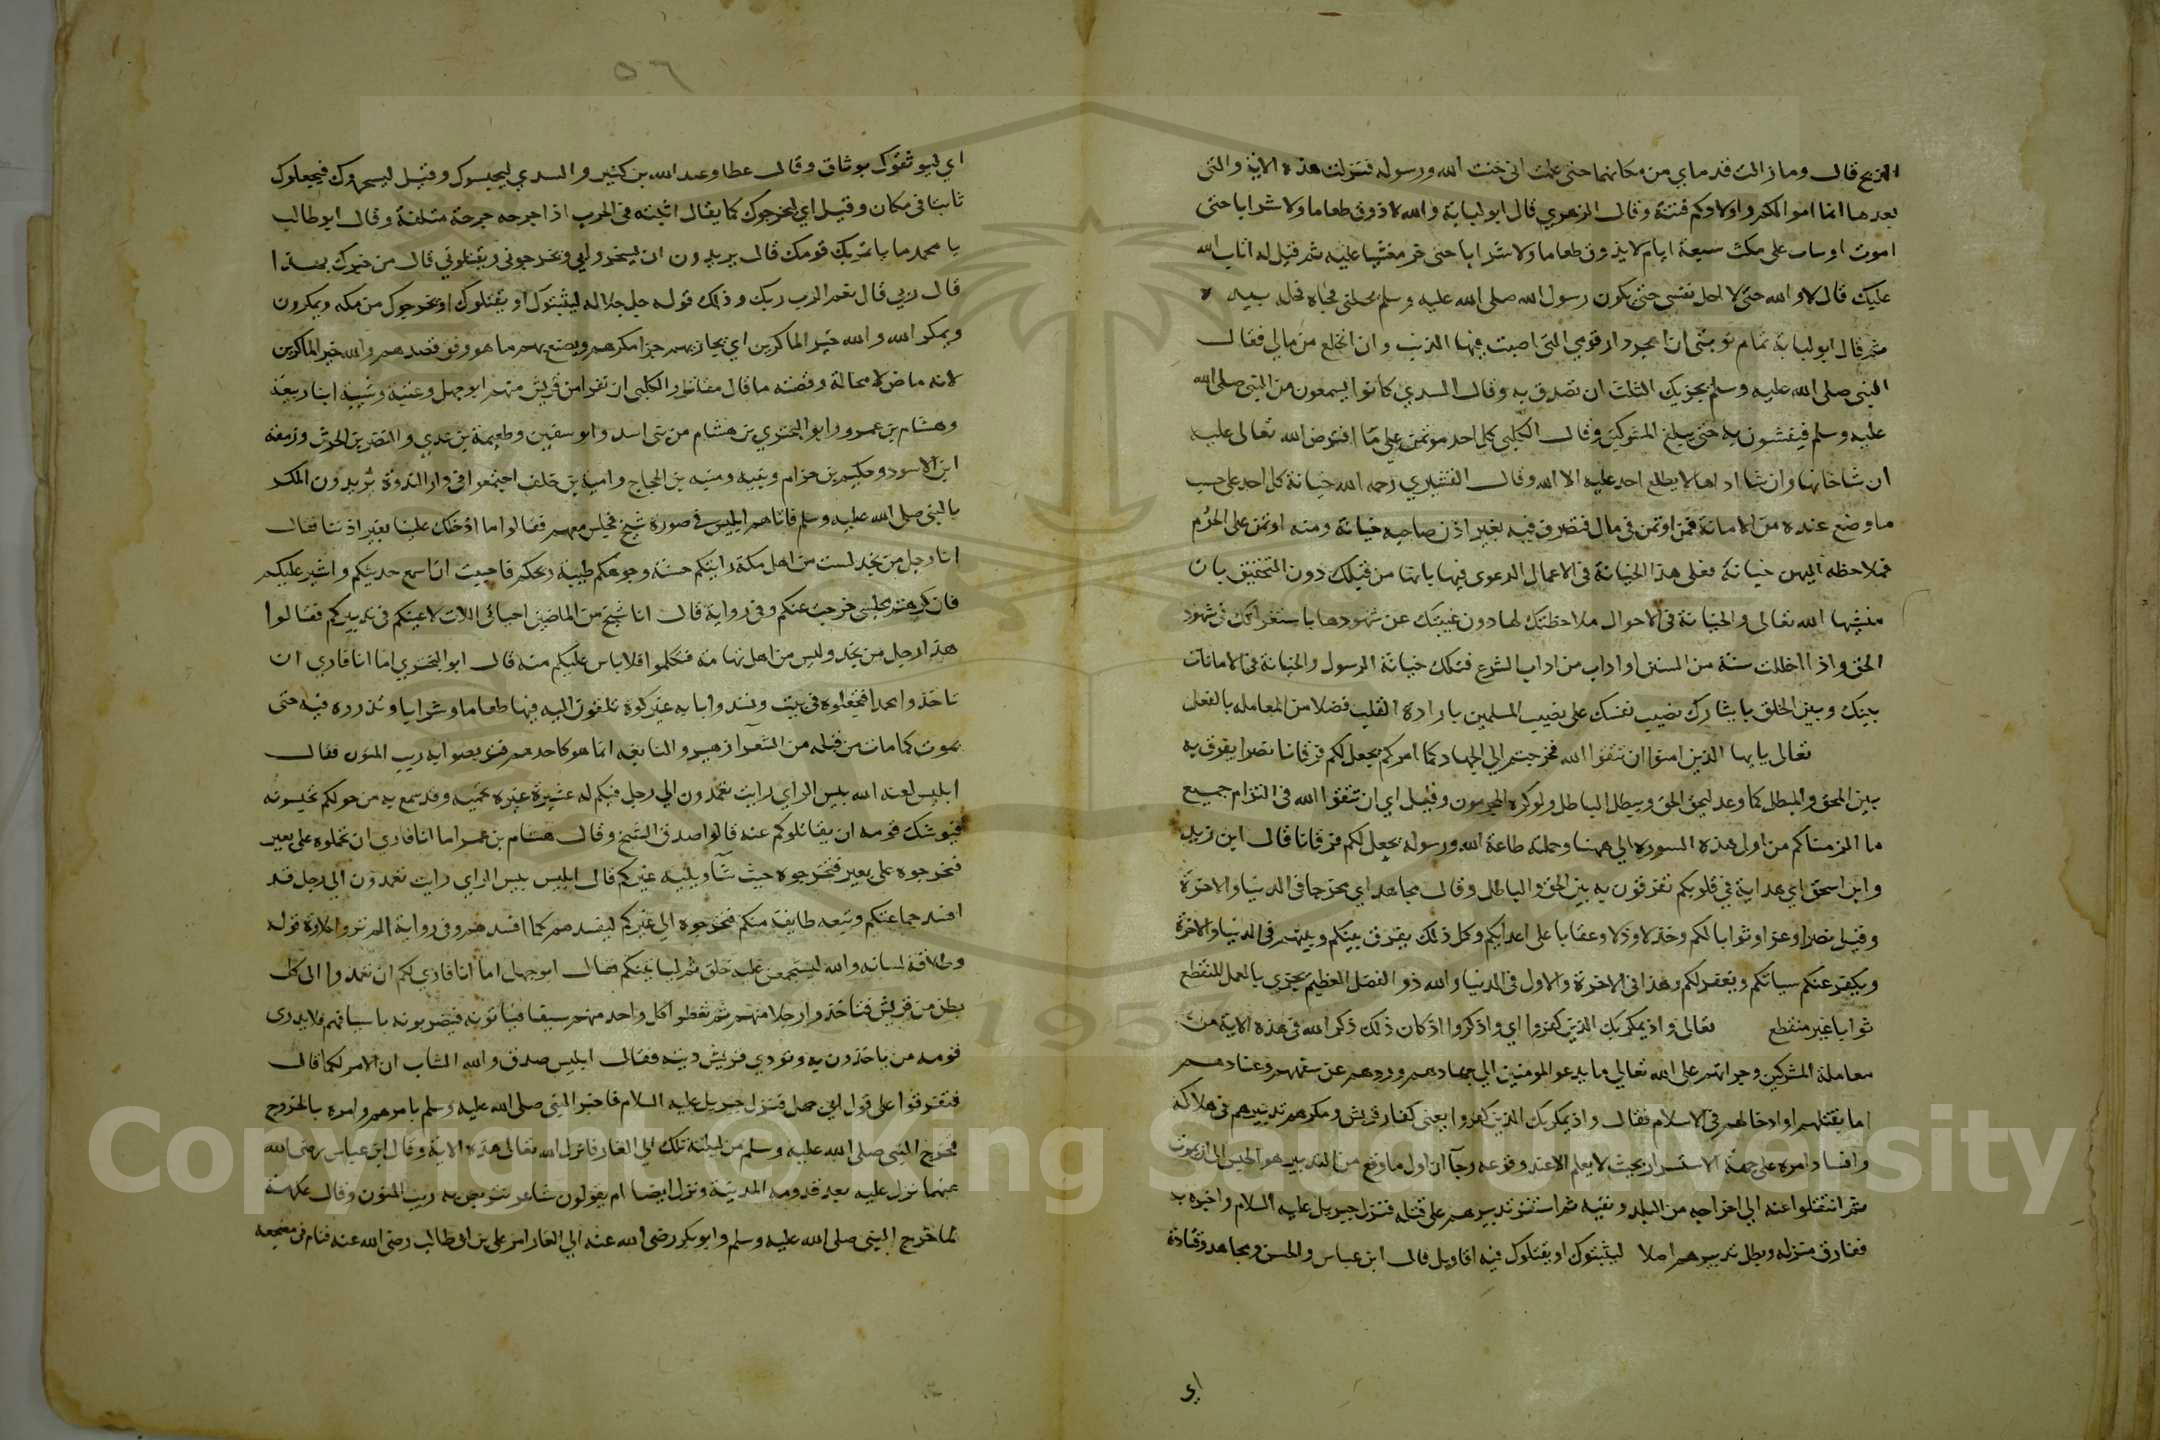 الذبح قال وما زالت قدماي من مكانهما حتى علمت اني خنت الله ورسوله فنزلت هذه الاية والتي
بعدها انما اموالكم واولادكم فتنة وقال الزهري قال ابو لبابة والله لا ذوق طعاما ولا شرابا حتى
اموت او يتاب علي مكث سبعة ايام لا يذوق طعاما ولا شرابا حتى خر مغشيا عليه ثم قيل له اتاب الله
عليك قال لا والله حتى لا احل نفسي حتى يكون رسول الله صلى الله عليه وسلم يحلني فجاه فحله بيده
ثم قال ابو لبابة تمام توبتي ان اهجر دار قومي التي اصبت فيها الذنب وان انخلع من مالي فقال
النبي صلى الله عليه وسلم يجزيك الثلث ان تصدق به وقال السدي كانوا يسمعون من النبي صلى الله
عليه وسلم فيفشون به حتى يبلغ المشركين وقال الكلبي كل احد موتمن على ما افترض الله تعالى عليه
ان شا خانها وان شا اداها لا يطلع احد عليه الا الله وقال القشيري رحمه الله خيانة كل احد على حسب
ما وضع عنده من الامانة فمن اوتمن في مال فتصرف فيه بغير اذن صاحبه خيانة ومنه اوتمن على الحرم
فملاحظه اليهن خيانة فعلى هذا الخيانة في الاعمال الدعوى فيها بانها من قبلك دون التحقيق بان
منشيها الله تعالى والخيانة في الاحوال ملاحظتك لها دون غيبتك عن شهودها باستغراقك في شهود
الحق واذا اخللت سنة من السنن او اداب من اداب الشرع فتلك خيانة الرسول والخيانة في الامانات
بينك وبين الخلق بايثارك نصيب نفسك على نصيب المسلمين بارادة القلب فضلا من المعامله بالفعل
تعالى يايها الذين امنوا ان تتقوا الله فخرجتم الي الجهاد كما امركم يجعل لكم فرقانا نصرا يفرق به
بين المحق والمبطل كما وعد ليحق الحق ويبطل الباطل ولو كره المجرمون وقيل اي ان تتقوا الله في التزام جميع
ما الزمناكم من اول هذه السوره الي ههنا وجملته طاعة الله ورسوله يجعل لكم فرقانا قال ابن زيد
وابن اسحق اي هداية في قلوبكم تفرقون به بين الحق والباطل وقال مجاهد اي مخرجا في الدنيا والاخرة
وقيل نصرا وعزا وثوابا لكم وخذلا وذلا وعقابا على اعدايكم وكل ذلك يفرق بينكم وبينهم في الدنيا والاخرة
ويكفر عنكم سياتكم ويغفر لكم وهذا في الاخرة والاول في الدنيا والله ذو الفضل العظيم يجزي بالعمل المنقطع
ثوابا غير منقطع تعالى واذ يمكر بك الذين كفروا اي واذكروا اذ كان ذلك ذكر الله في هذه الاية من
معاملة المشركين وجراتهم على الله تعالي ما يدعو المومنين الي جهادهم وردهم عن سفههم وعنادهم
اما بقتلهم او ادخالهم في الاسلام فقال واذ يمكر بك الذين كفروا يعني كفار قريش ومكرهم تدبيرهم في هلاكه
وافساد امره على جهة الاستسرار بحيث لا يعلم الا عند وقوعه رجآ ان اول ما وقع من التدبير هو الحبس الى ان يموت
ثم انتقلوا عنه الي اخراجه من البلد ونفيه ثم استقر تدبيرهم على قتله فنزل جبريل عليه السلام واخبره به
ففارق منزله وبطل تدبيرهم اصلا ليثبتوك او يقتلوك فيه اقاويل قال ابن عباس والحسن ومجاهد وقتادة
اي
٥٦
اي ليوثقوك بوثاق وقال عطا وعبد الله بن كثير والسدي ليحبسوك وقيل ليسحروك فيجعلوك
ثابتا في مكان وقيل اي ليجرحوك كما يقال اثبته في الحرب اذا جرحه جرحة مثلفة وقال ابو طالب
يا محمد ما ياتمر بك قومك قال يريدون ان يسخروا بي ويخرجوني ويقتلوني قال من خبرك بهذا
قال ربي قال نعم الرب ربك وذلك قوله جل جلاله ليثبتوك او يقتلوك او يخرجوك من مكه ويمكرون
ويمكر الله والله خير الماكرين اي يجازيهم جزا مكرهم ويصنع بهم ما هو وفق قصدهم والله خير الماكرين
لانه ماض لا محالة وقصته ما قال مقاتل والكلبي ان نفرا من قريش منهم ابو جهل وعتبة وشيبة ابنا ربيعة
وهشام بن عمرو وابو البختري بن هشام من بني اسد وابو سفين وطعيمة بن عدي والنضر بن الحرث وزمعة
ابن الاسود وحكيم بن حزام ونبيه ومنبه بن الحجاج وامية بن خلف اجتمعوا في دار الندوة يريدون المكر
بالنبي صلى الله عليه وسلم فاتاهم ابليس في صورة شيخ فجلس معهم فقالوا ما ادخلك علينا بغير اذننا فقال
انا رجل من نجد لست من اهل مكة رايتكم حسنة وجوهكم طيبة ريحكم فاحببت ان اسمع حديثكم واشير عليكم
فان كرهتم مجلسي خرجت عنكم وفي رواية قال انا شيخ من الماضين احيائي اللات لاعينكم في تدبيركم فقالوا
هذا رجل من نجد وليس من اهل تهامه فتكلموا فلا باس عليكم منه قال ابو البختري اما انا فاري ان
تاخذوا محمدا فتجعلوه في بيت وتسدوا بابه غير كوة تلقون اليه فيها طعاما وشرابا وتذروه فيه حتى
يموت كما مات من قبله من الشعرآ زهير والنابغه انما هو كاحدهم فتربصوا به ريب المنون فقال
ابليس لعنه الله بيس الراي رايت تعمدون الي رجل فيكم له عشيرة غيره محميه وقد سمع به من حولكم تحبسونه
فيوشك قومه ان يقاتلوكم عنه قالوا صدق الشيخ وقال هشام بن عمرو اما انا فاري ان تحملوه على بعير
فتخرجوه على بعير فتخرجوه حيث شآ ويليه غيركم قال ابليس بيس الراي رايت تعمدون الي رجل قد
افسد جماعتكم وتبعه طايفة منكم فتخرجوه الي غيركم ليفسدهم كما افسدهم وفي رواية الم تروا حلاوة قوله
وطلاقة لسانه والله ليستجمعن عليه خلق ثم لياتينكم فقال ابو جهل اما انا فاري لكم ان تعمدوا الى كل
بطن من قريش فتاخذوا رجلا منهم ثم تعطوا كل واحد منهم سيفا فياتونه فيضربونه باسيافهم فلا يدري
قومه من ياخذون به وتودي قريش ديته فقال ابليس صدق والله الشاب ان الامر لكما قال
فتفرقوا على قول ابي جهل فنزل جبريل عليه السلام فاخبر النبي صلى الله عليه وسلم بامرهم وامره بالخروج
فخرج النبي صلى الله عليه وسلم من ليلته تلك الي الغار فانزل الله تعالى هذه الاية وقال ابن عباس رضى الله
عنهما نزل عليه بعد قدومه المدينة ونزل ايضا ام يقولون شاعر نتربص به ريب المنون وقال عكرمة
لما خرج النبي صلى الله عليه وسلم وابو بكر رضى الله عنه الي الغار امر علي بن ابي طالب رضى الله عنه فنام في مضجعه
Copyright © King Saud University
1957